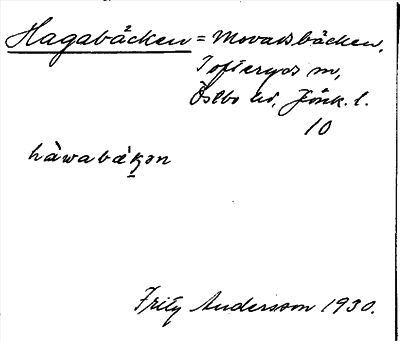 Hagabäcken = Movadsbäcken,
Tofteryds sn,
Östbo hd, Jönk. l.
10
hàwabäkən
Fritz Andersson 1930.